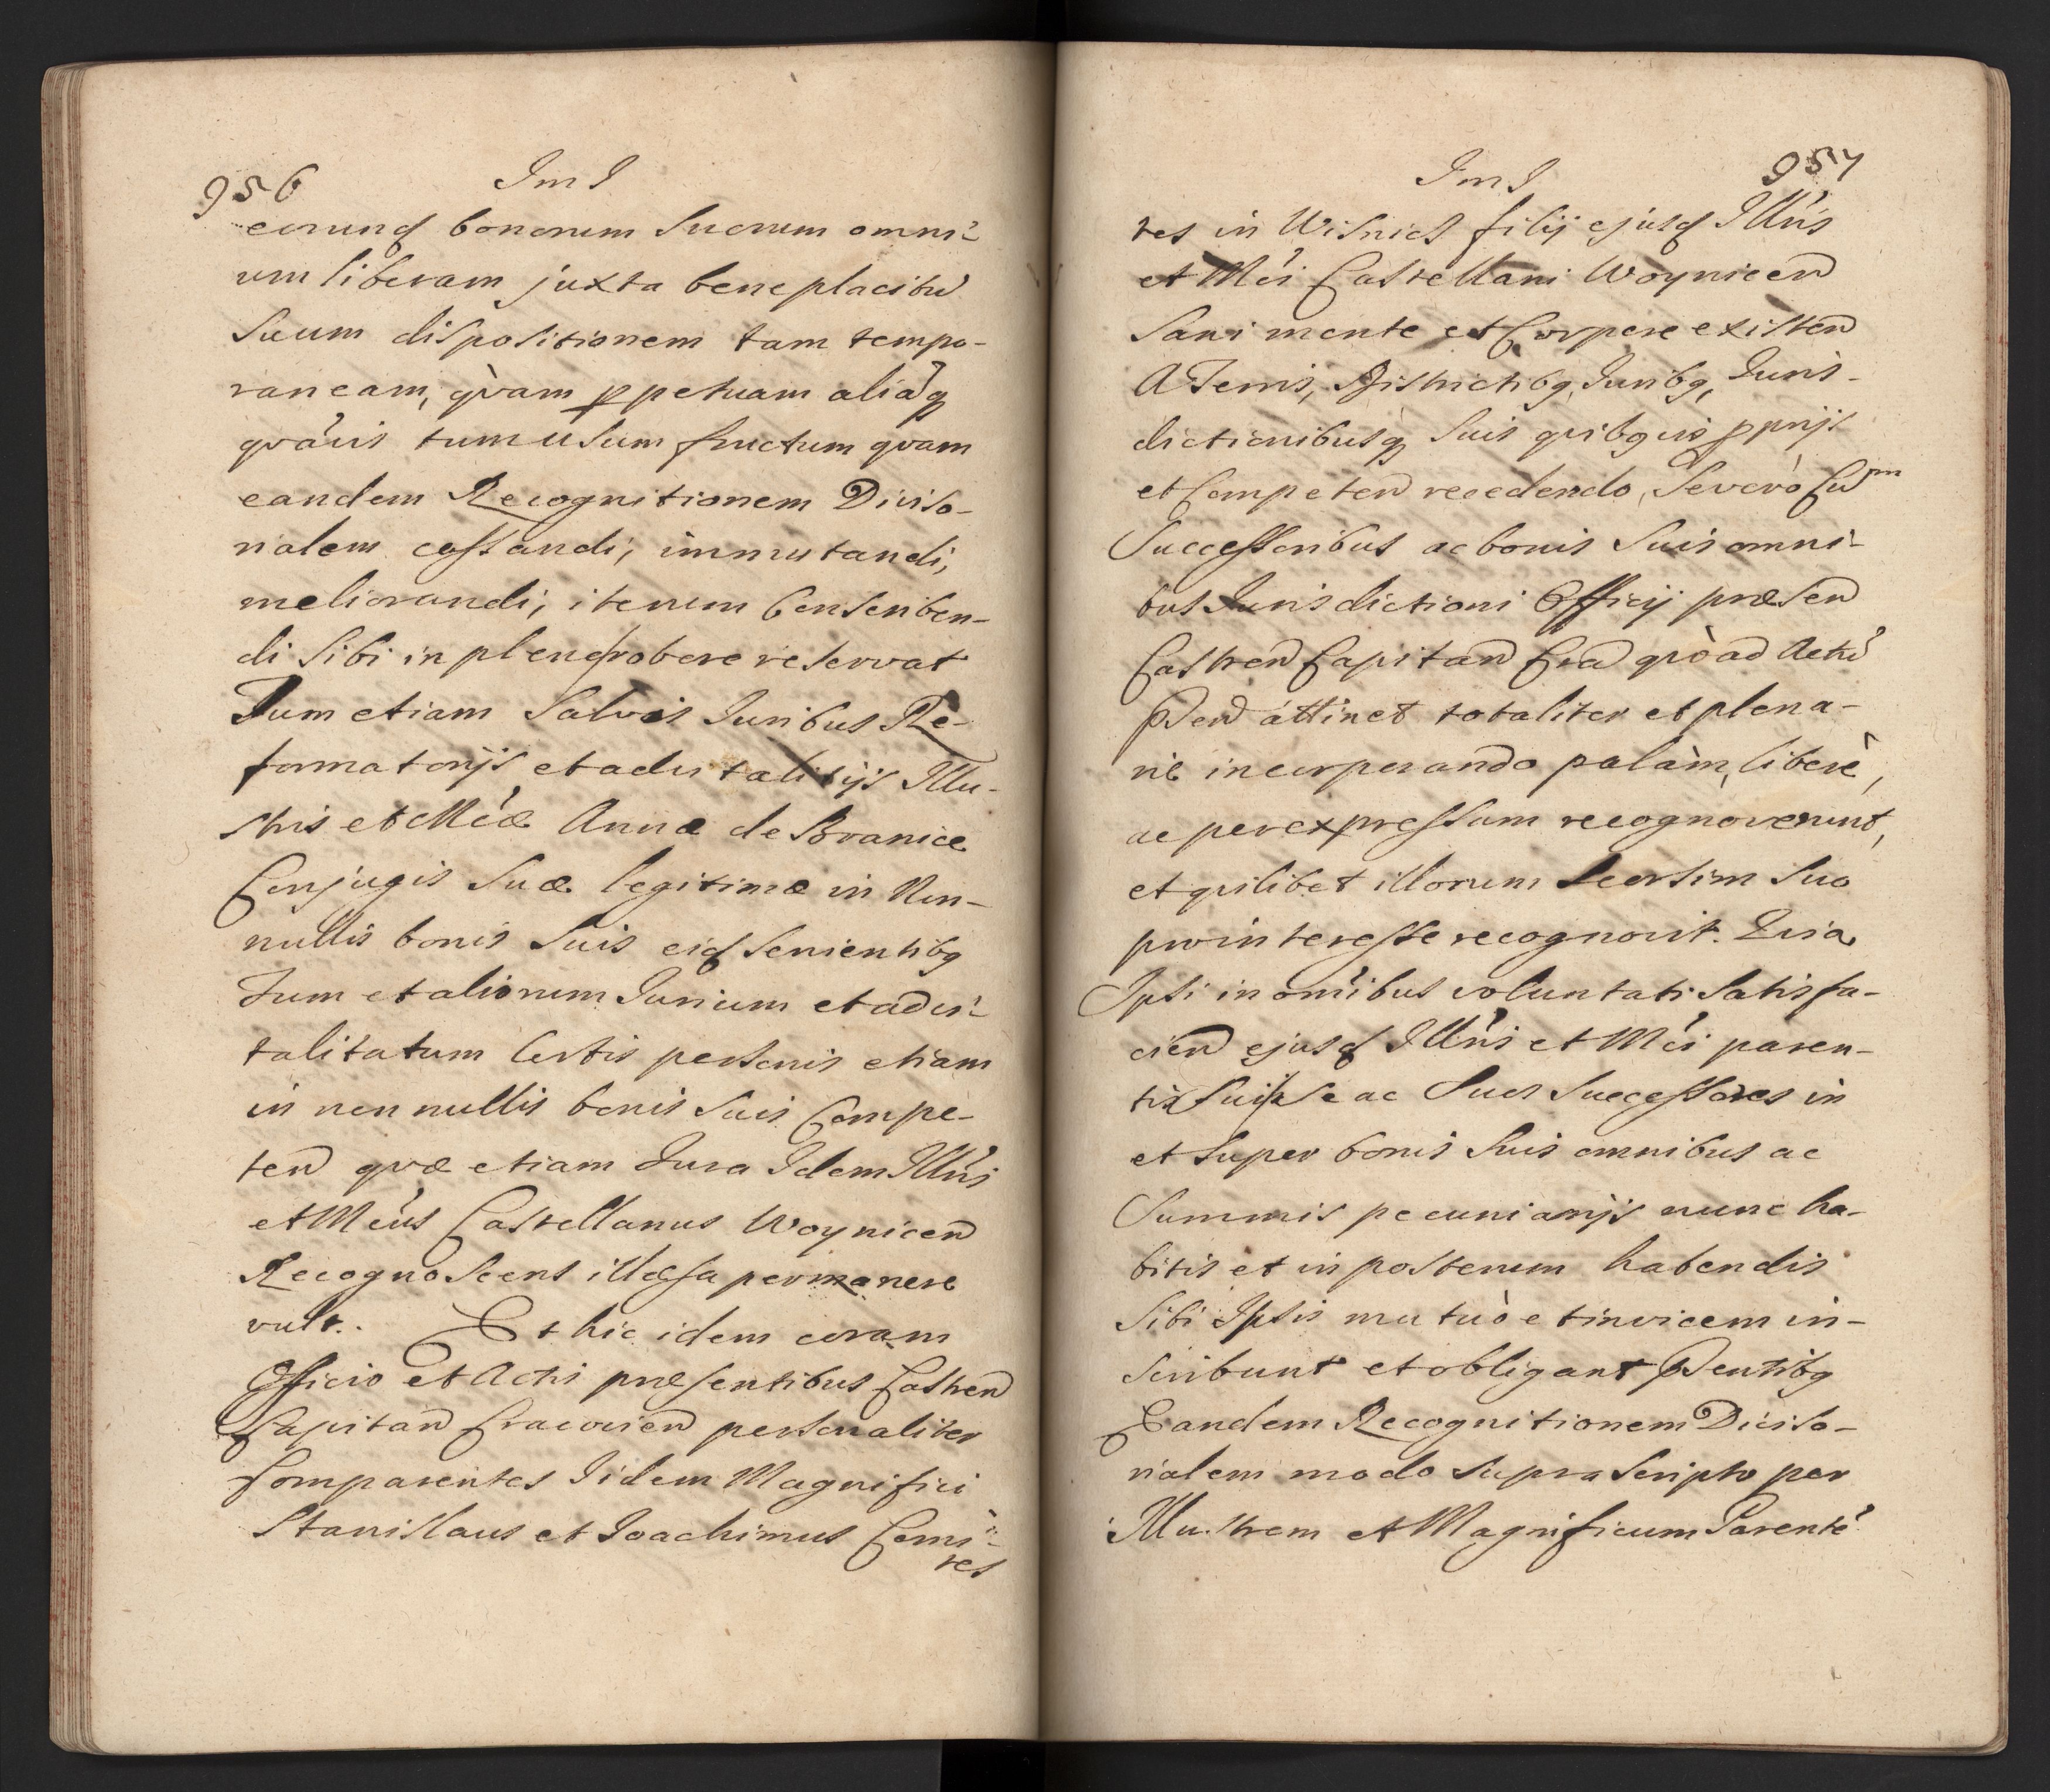 956
Im I
eorund bonorum Suorum omni-
um liberam juxta beneplacitū
Suum dispositionem tam tempo-
raneam, qvam ppetuam aliāq
qvāvis tum usum fructum qvam
eandem Recognitionem Diviso-
rialem cassandi, immutandi,
meliorandi, iterum Conscriben-
di Sibi in pleno robore reservat
Tum etiam Salvis Juribus Re-
formatorijs et advitalitijs Illu-
stris et Mcæ Annæ de Branice
Conjugis Suæ legitimæ in Non-
nullis bonis Suis eid servientibq
Tum et aliorum Jurium et advi-
talitatum Certis personis etiam
in nonnullis bonis Suis Compe-
ten qvæ etiam Jura Idem Illris
et Mcus Castellanus Woynicen
Recognoscens illæsa permanere
vult. Et hic idem coram
Officio et Actis præsentibus Castren
Capitan Cracovien personaliter
Comparentes Iidem Magnifici
Stanislaus et Joachimus Comi-
tes
957
Im I
tes in Wisnicz filij ejusd Illris
et Mci Castellani Woynicen
Sani mente et Corpore existen
A Terris, Districtibq, Juribq, Juris-
dictionibusq Suis qvibqvis pprijs
et Competen recedendo, Se vero Cum
Successoribus ac bonis Suis omni-
bus Jurisdictioni Officij præsen
Castren Capitan Cra qvò ad Actū
Pden attinet totaliter et plena-
rie incorporando palàm, liberè,
ac per expressum recognoverunt,
et qvilibet illorum Seorsim Suo
pro interesse recognovit. Qvia
Ipsi in omibus voluntati Satisfa-
cien ejusd Illris et Mci paren-
tis Sui Se ac Suos Successores in
et Super bonis Suis omnibus ac
Summis pecuniarijs nunc ha-
bitis et in posterum habendis
Sibi Ipsis mutuò et invicem in-
scribunt et obligant Pdentibq
Eandem Recognitionem Diviso-
rialem modo supra scripto per
Illustrem et Magnificum Parentē